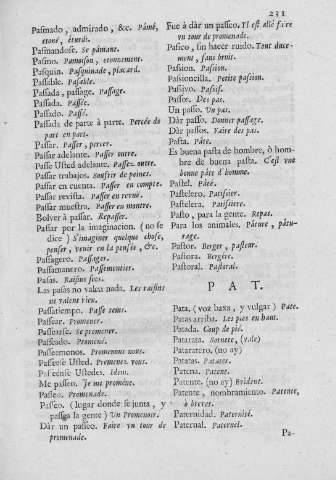 231
Pasmado, admirado, &c. Pâmé,
etoné, éturdi.
Pasmandose. Se pâmant.
Pasmo. Pamoison, etonnement.
Pasquin. Pasquinade, placard.
Passable. Pasable.
Passada, passage. Passage.
Passada. Passée.
Passado. Passé.
Passada de parte à parte. Percée de
part en part.
Passar. Passer, percer.
Passar adelante. Passer outre.
Passe Usted adelante. Passez outre.
Passar trabajos. Soufrir de peines.
Passar en cuenta. Passer en compte.
Passar revista. Passer en revuë.
Passar muestra. Passer en montre.
Bolver à passar. Repasser.
Passar por la imaginacion. (no se
dice) S'imaginer quelque chose,
penser, venir en la pensée, &c.
Passagero. Passager.
Passamanero. Passementier.
Pasas. Raisins secs.
Las pasas no valen nada. Les raisins
ne valent rien.
Passatiempo. Passe tems.
Passear. Promener.
Passearse. Se promener.
Passeado. Promené.
Passeemonos. Promenons nous.
Passeese Usted. Promenez vous.
Passeense Ustedes. Idem.
Me passeo. Je me proméne.
Passeo. Promenade.
Passeo. (lugar donde se junta, y
passea la gente) Un Promenoir.
Dàr un passeo. Faire un tour de
promenade.
Fue à dàr un passeo. Il est allé faire
un tour de promenade.
Pasico, sin hacer ruido. Tout douce-
ment, sans bruit.
Passion. Passion.
Passioncilla. Petite passion.
Passivo. Passif.
Passos. Des pas.
Un passo. Un pas.
Dàr passo. Donner passage.
Dàr passos. Faire des pas.
Pasta. Pâte.
Es buena pasta de hombre, ò hom-
bre de buena pasta. C'est une
bonne pâte d'homme.
Pastel. Pâté.
Pastelero. Patissier.
Pastelera. Patissiere.
Pasto, para la gente. Repas.
Para los animales. Pâture, pâtu-
rage.
Pastor. Berger, pasteur.
Pastora. Bergére.
Pastoral. Pastoral.
PAT.
Pata, (voz baxa, y vulgar) Pate.
Patas arriba. Les piez en haut.
Patada. Coup de pié.
Patarata. Sornette, (role)
Pataratero. (no ay)
Patatas. Patates.
Patena. Patene.
Patente. (no ay) Evident.
Patente, nombramiento. Patente,
à brever.
Paternidad. Paternité.
Paternal. Paternel.
Pa-